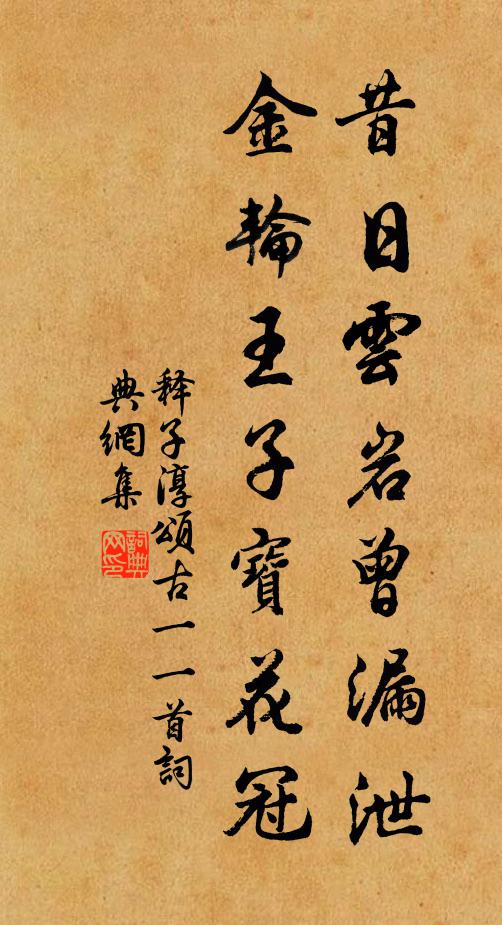 昔日雲岩曾漏泄
金輪王子寶花冠
释子淳頌古一一首詞
典網集
詞典網印